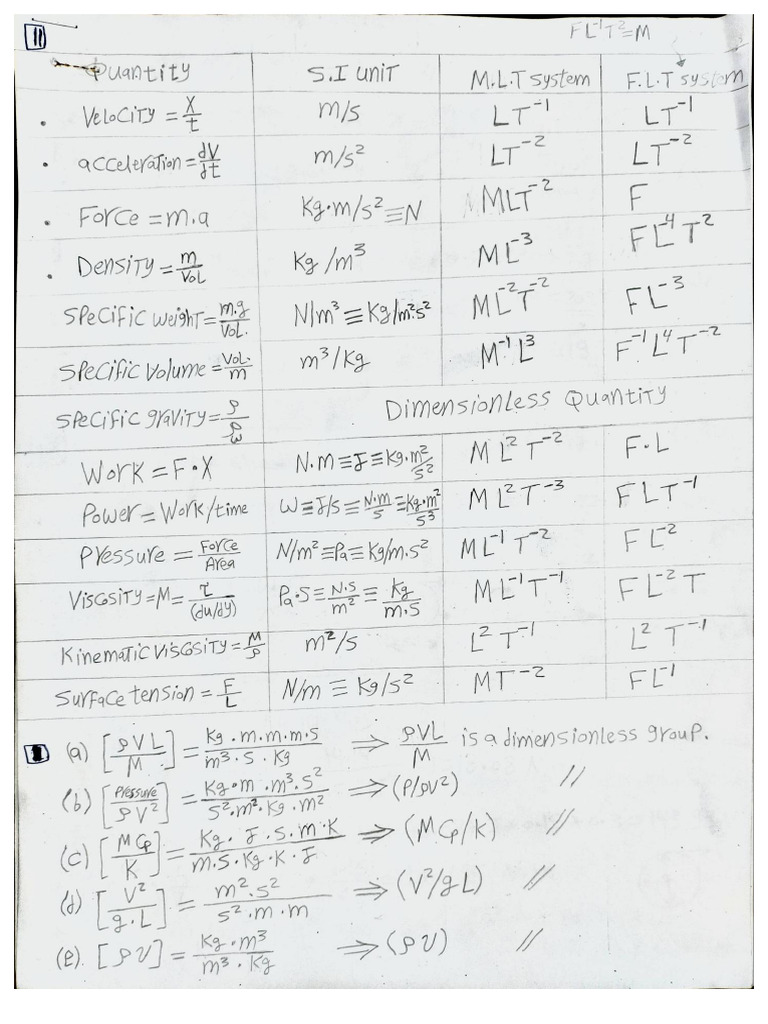 11
FL⁻¹T²=M
Quantity S.I unit M.L.T system F.L.T system
Velocity = X/t m/s LT⁻¹ LT⁻¹
acceleration = dV/dt m/s² LT⁻² LT⁻²
Force = m.a Kg·m/s² ≡ N MLT⁻² F
Density = m/Vol Kg/m³ ML⁻³ FL⁻⁴T²
Specific weight = m.g/Vol. N/m³ ≡ Kg/m²s² ML⁻²T⁻² FL⁻³
Specific volume = Vol./m m³/Kg M⁻¹L³ F⁻¹L⁴T⁻²
Specific gravity = ρ/ρω Dimensionless Quantity
Work = F·X N.m ≡ J ≡ Kg·m²/s² ML²T⁻² F·L
Power = Work/time W ≡ J/s ≡ N.m/s ≡ Kg·m²/s³ ML²T⁻³ FLT⁻¹
Pressure = Force/Area N/m² ≡ Pa ≡ Kg/m.s² ML⁻¹T⁻² FL⁻²
Viscosity = M = τ/(du/dy) Pa·s ≡ N.s/m² ≡ Kg/m.s ML⁻¹T⁻¹ FL⁻²T
Kinematic Viscosity = M/ρ m²/s L²T⁻¹ L²T⁻¹
Surface tension = F/L N/m ≡ Kg/s² MT⁻² FL⁻¹
(a) [ρVL/M] = Kg.m.m.m.s/m³.s.Kg ⇒ ρVL/M is a dimensionless group.
(b) [Pressure/ρV²] = Kg·m.m³.s²/s².m².Kg.m² ⇒ (P/ρV²) //
(c) [MCp/K] = Kg.J.s.m.K/m.s.Kg.K.J ⇒ (MCp/k) //
(d) [V²/g.L] = m².s²/s².m.m ⇒ (V²/gL) //
(e). [ρV] = Kg.m³/m³.Kg ⇒ (ρV) //